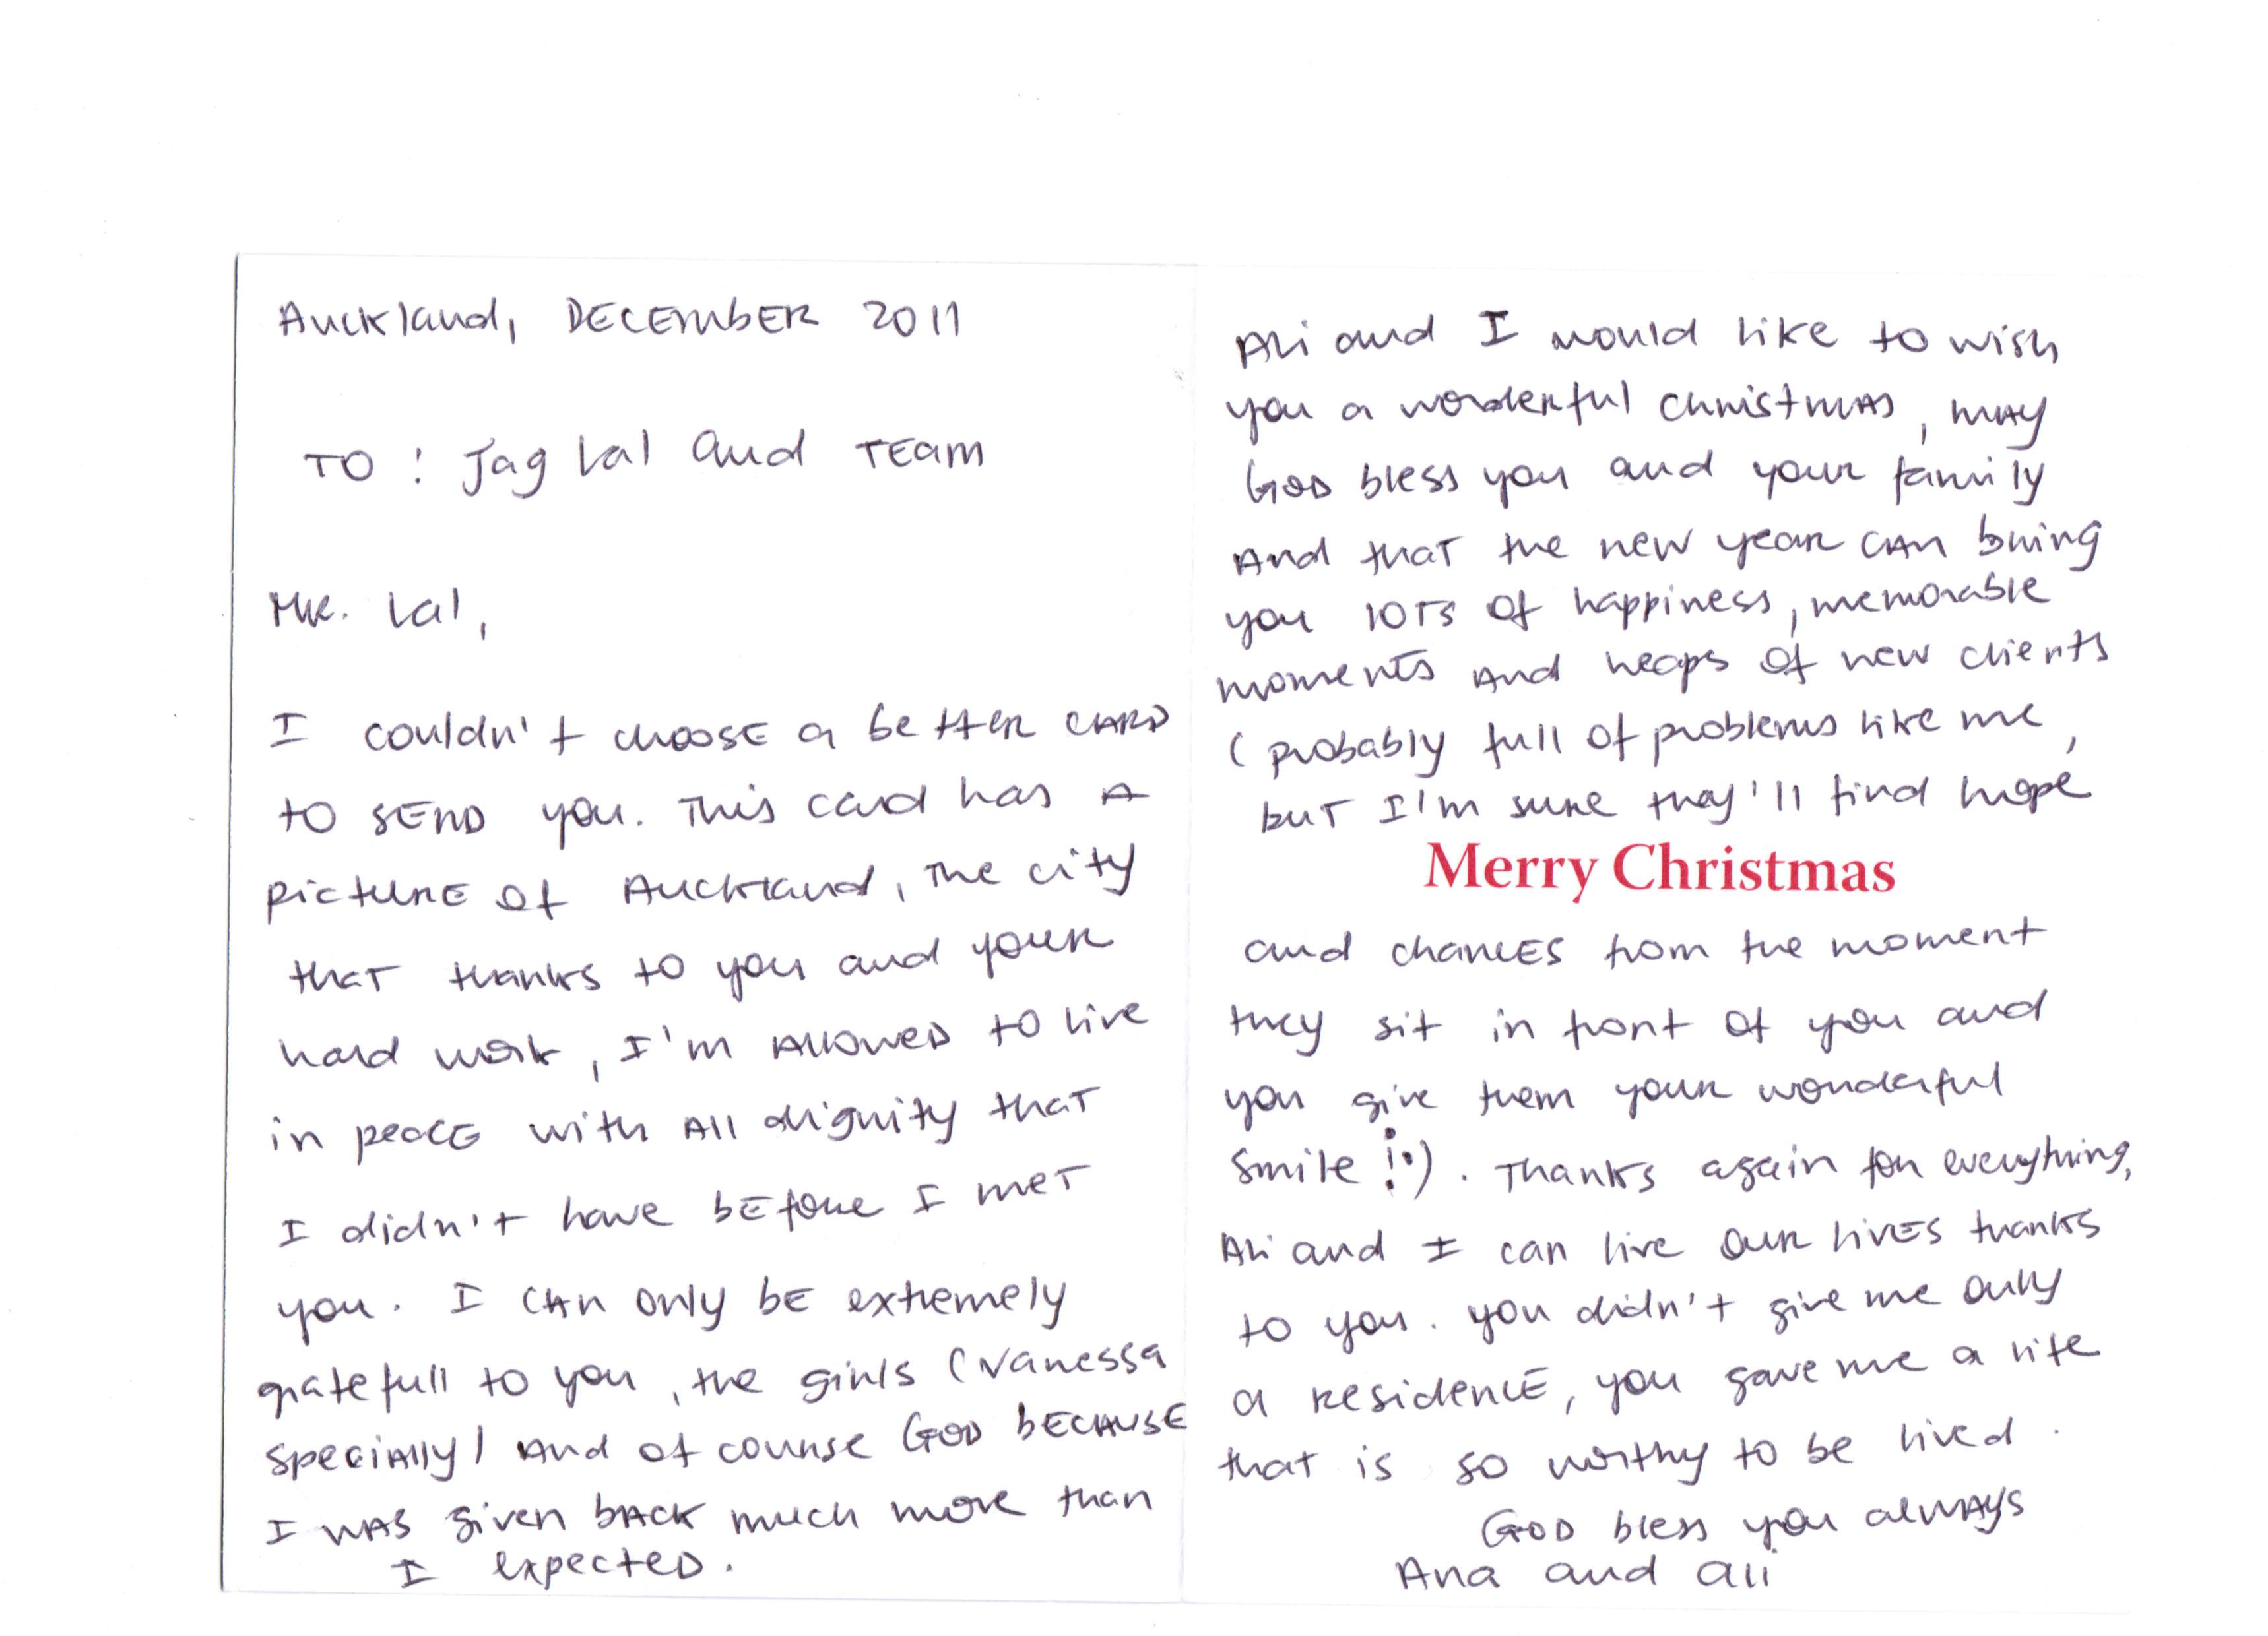 Auckland, DECEMBER 2011
TO : Jag Lal and TEAM
MR. Lal,
I couldn't choose a better CARD
to SEND you. This card has A
picture of Auckland, the city
that thanks to you and your
hard work, I'm Allowed to live
in peace with All dignity that
I didn't have before I met
you. I can only be extremely
gratefull to you, the girls (Vanessa
specially) And of course God because
I was given back much more than
I expected.
Ali and I would like to wish
you a wonderful christmas, may
God bless you and your family
And that the new year can bring
you lots of happiness, memorable
moments and heaps of new clients
(probably full of problems like me,
but I'm sure they'll find hope
Merry Christmas
and chances from the moment
they sit in front of you and
you give them your wonderful
smile !:) . Thanks again for everything,
Ali and I can live our lives thanks
to you. you didn't give me only
a residence, you gave me a life
that is so worthy to be lived.
God bless you always
Ana and Ali